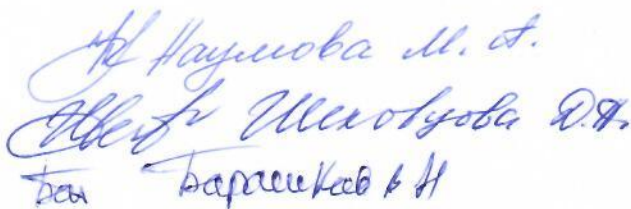 Наумова М. А.
Шеховцова Д.А.
Барашков В Н